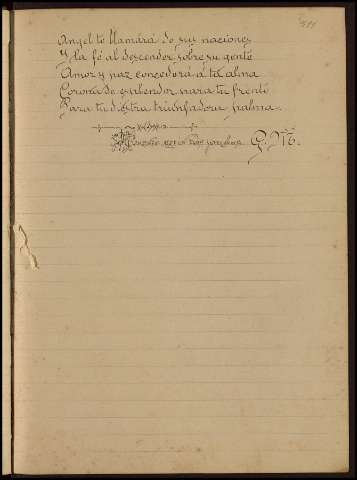 Angel te llamará de sus naciones
Y la fé al descender sobre su gente
Amor y paz concederá á tu alma
Corona de esplendor para tu frente
Para tu diestra triunfadora palma.
G. M.